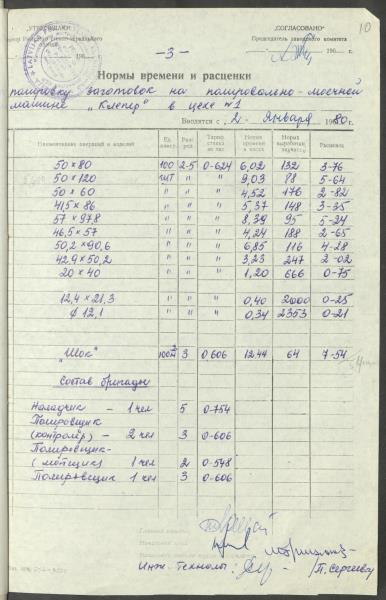 „УТВЕРЖДАЮ"
„СОГЛАСОВАНО"
10
Председатель заводского комитета
196
– 3 –
196
Нормы времени и расценки
полировку заготовок на полировально-моечной
машине „Клепер" в цехе №1
Вводятся с „ 2 – Января 19680 г.
Наименование операций и изделий
Ед. измер.
Разряд
Тариф. ставка за час
Норма времени в часах
Норма выработки
Расценка
50 × 80 100 2-5 0-624 6,02 132 3-76
50 × 120 шт " " 9,03 88 5-64
50 × 60 " " " 4,52 176 2-82
41,5 × 86 " " " 5,37 148 3-35
57 × 97,8 " " " 8,39 95 5-24
46,5 × 57 " " " 4,24 188 2-65
50,2 × 90,6 " " " 6,85 116 4-28
42,9 × 50,2 " " " 3,23 247 2-02
20 × 40 " " " 1,20 666 0-75
12,4 × 21,3 " " " 0,40 2000 0-25
ø 12,1 " " " 0,34 2353 0-21
„Шок" 3 0.606 12,44 64 7-54
Состав бригады
Наладчик – 1 чел 5 0-754
Полировщик
(контролер) – 2 чел 3 0-606
Полировщик-
(мойщик) 1 чел 2 0-548
Полировщик 1 чел 3 0-606
Инж.-технолог:
П. Сергеева